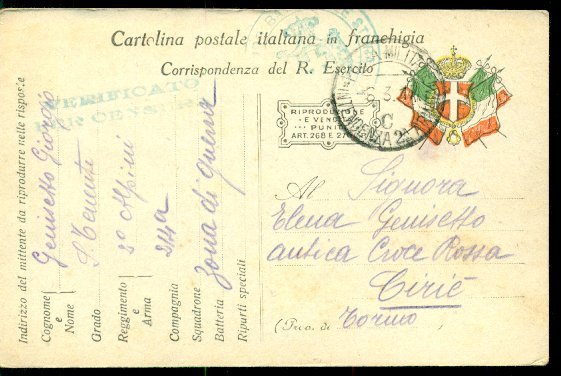 Cartolina postale italiana in franchigia
Corrispondenza del R. Esercito
VERIFICATO
PER CENSURA
RIPRODUZIONE
E VENDITA
PUNITE
ART. 268 E
C
Al Signora
Elena Genisetto
antica Croce Rossa
Ciriè
(Prov. di Torino
Indirizzo del mittente da riprodurre nelle risposte
Cognome e Nome Genisetto Giorgio
Grado S. Tenente
Reggimento e Arma 2º Alpini
Compagnia
Squadrone
Batteria Zona di Guerra
Riparti speciali